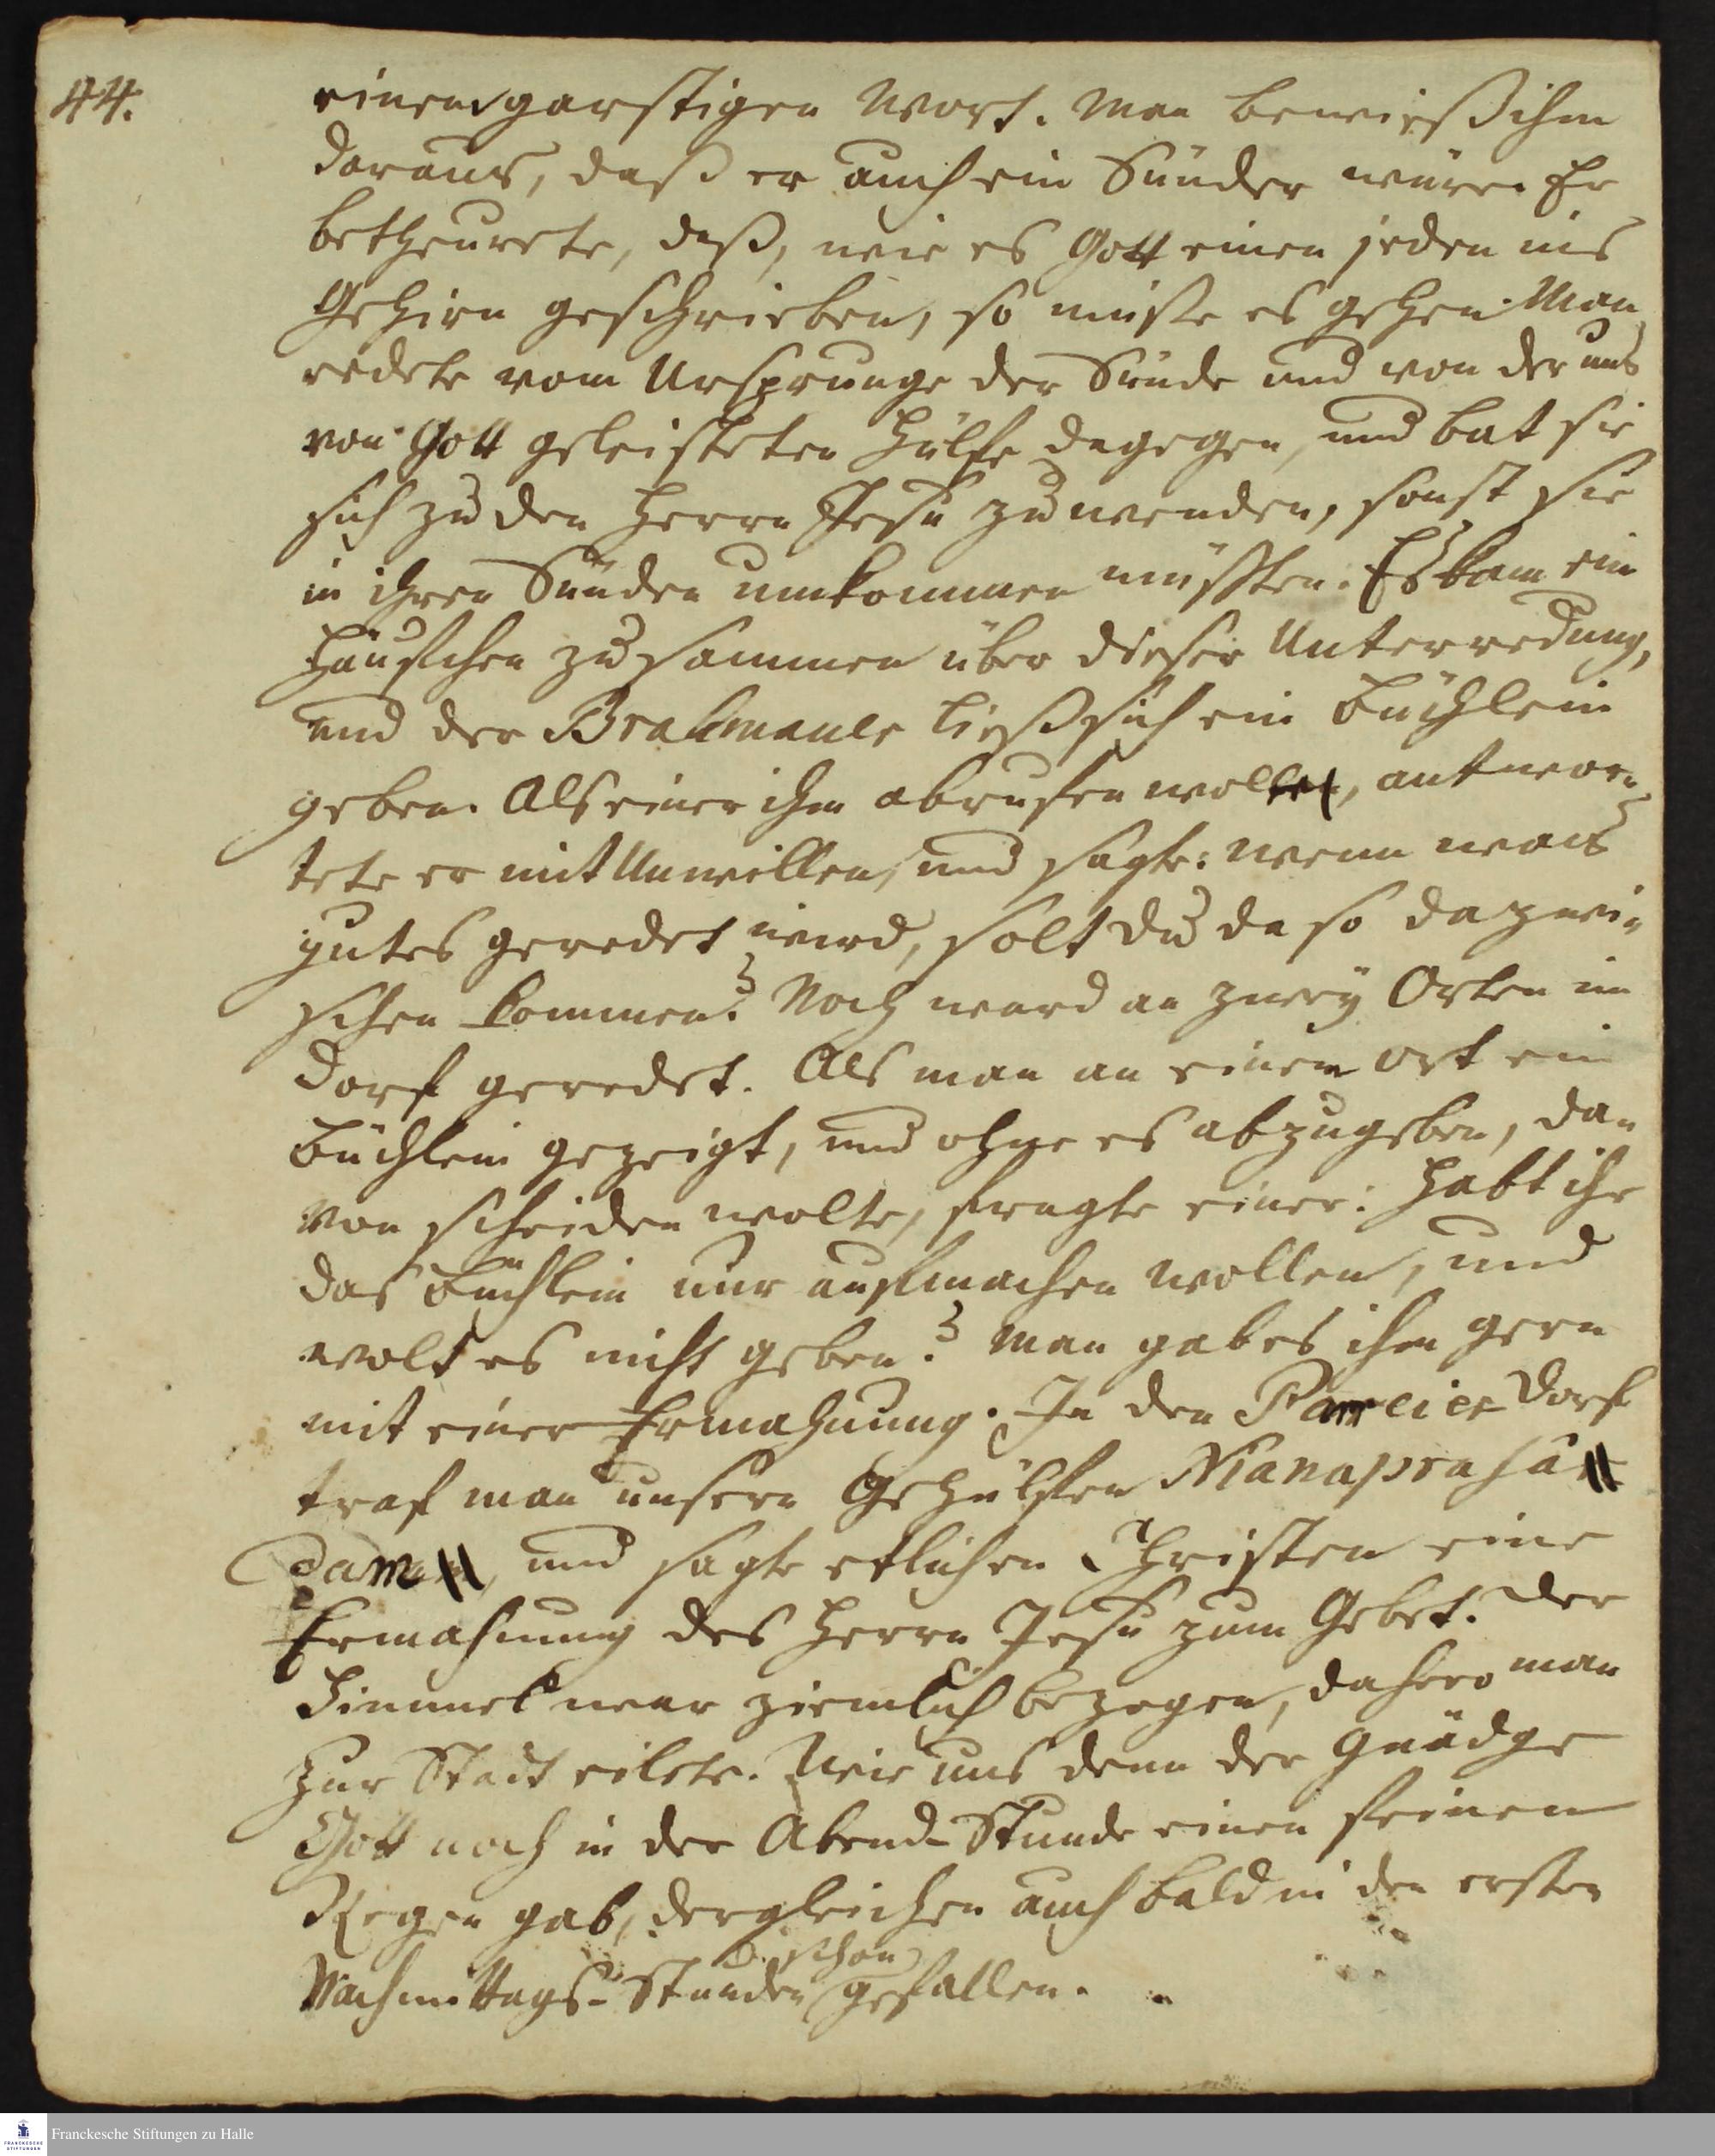 44.
einem garstigen Wort. Man bewieß ihm
daraus, daß er auch ein Sünder wäre. Er
betheurete, daß, wie es Gott einen jeden ins
Gehirn geschrieben, so müße es gehen. Man
redete vom Ursprunge der Sünde und von der uns
von Gott geleisteten Hülfe dagegen, und bat sie
sich zu den Herrn Jesu zu wenden, sonst sie
in ihren Sünden umkommen müßten. Es kam ein
Häufchen zusammen über dieser Unterredung,
und der Brahmaner ließ sich ein Büchlein
geben. Als einer ihn abrufen wolte, antwor-
tete er mit Unwillen, und sagte: wenn was
gutes geredet wird, solt du da so dazwi-
schen kommen? Noch ward an zwey Orten im
Dorf geredet. Als man an einem Ort ein
Büchlein gezeigt, und ohne es abzugeben, da-
von scheiden wolte, fragte einer: Habt ihr
das Büchlein nur aufmachen wollen, und
wolt es nicht geben? Man gab es ihm gern
mit einer Ermahnung. In den Parreier Dorf
traf man unsern Gehülfen Nianaprasâ=
dam, und sagte etlichen Christen eine
Ermahnung des Herrn Jesu zum Gebet. Der
Himmel war ziemlich bezogen, dahero man
zur Stadt eilete. Wie uns denn der Gnädge
Gott noch in der Abend-Stunde einen feinen
Regen gab, dergleichen auch bald in den ersten
schon
Nachmittags-Stunden gefallen.
Franckesche Stiftungen zu Halle